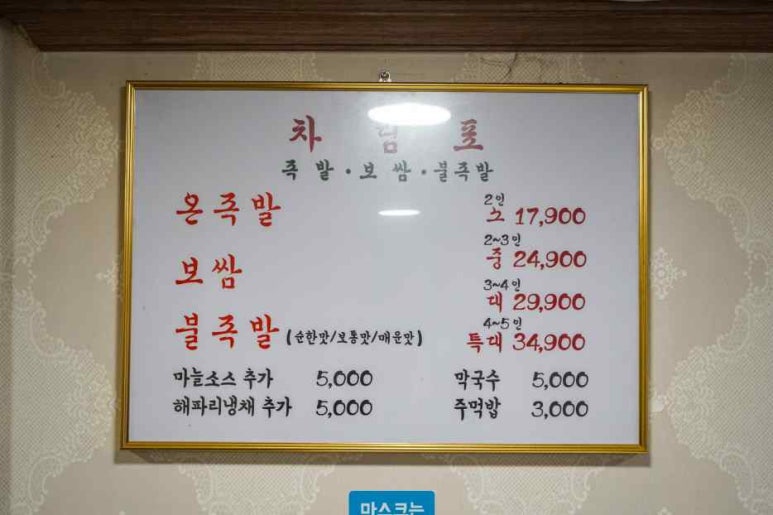 차 림 표
족 발 · 보 쌈 · 불 족 발
온 족 발
2인
소 17,900
2~3인
중 24,900
보 쌈
3~4인
대 29,900
불 족 발 (순한맛/보통맛/매운맛)
4~5인
특대 34,900
마늘소스 추가 5,000 막국수 5,000
해파리냉채 추가 5,000 주먹밥 3,000
마스크는